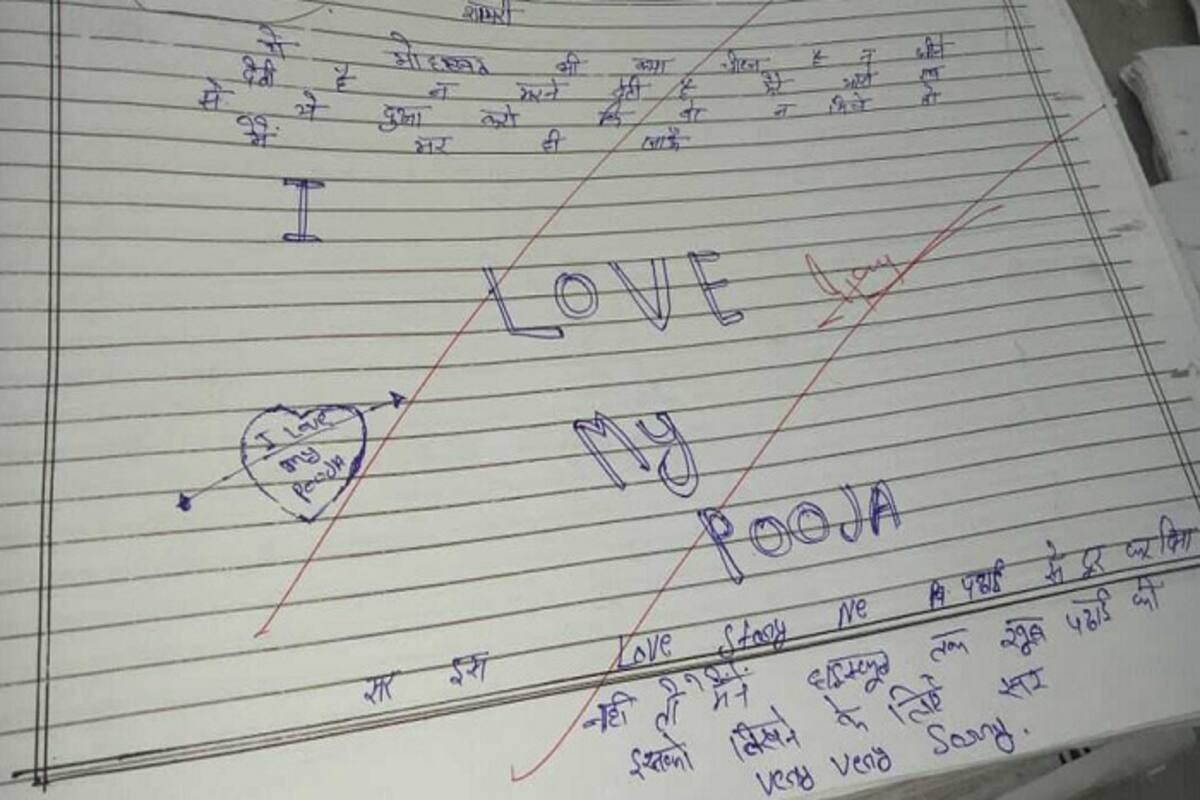 शायरी
ये मोहब्बत भी क्या चीज है न जीने
देती है न मरने देती है
से ये दुआ करो कि वो न मिले तो
मैं मर ही जाऊँ
I
LOVE
I Love
my
POOJA
My
POOJA
सर इस Love Story Ne पढाई से दूर कर दिया
नही तो मैंने हाईस्कूल तक खूब पढाई की
इसको लिखने के लिए सर
very very Sorry.